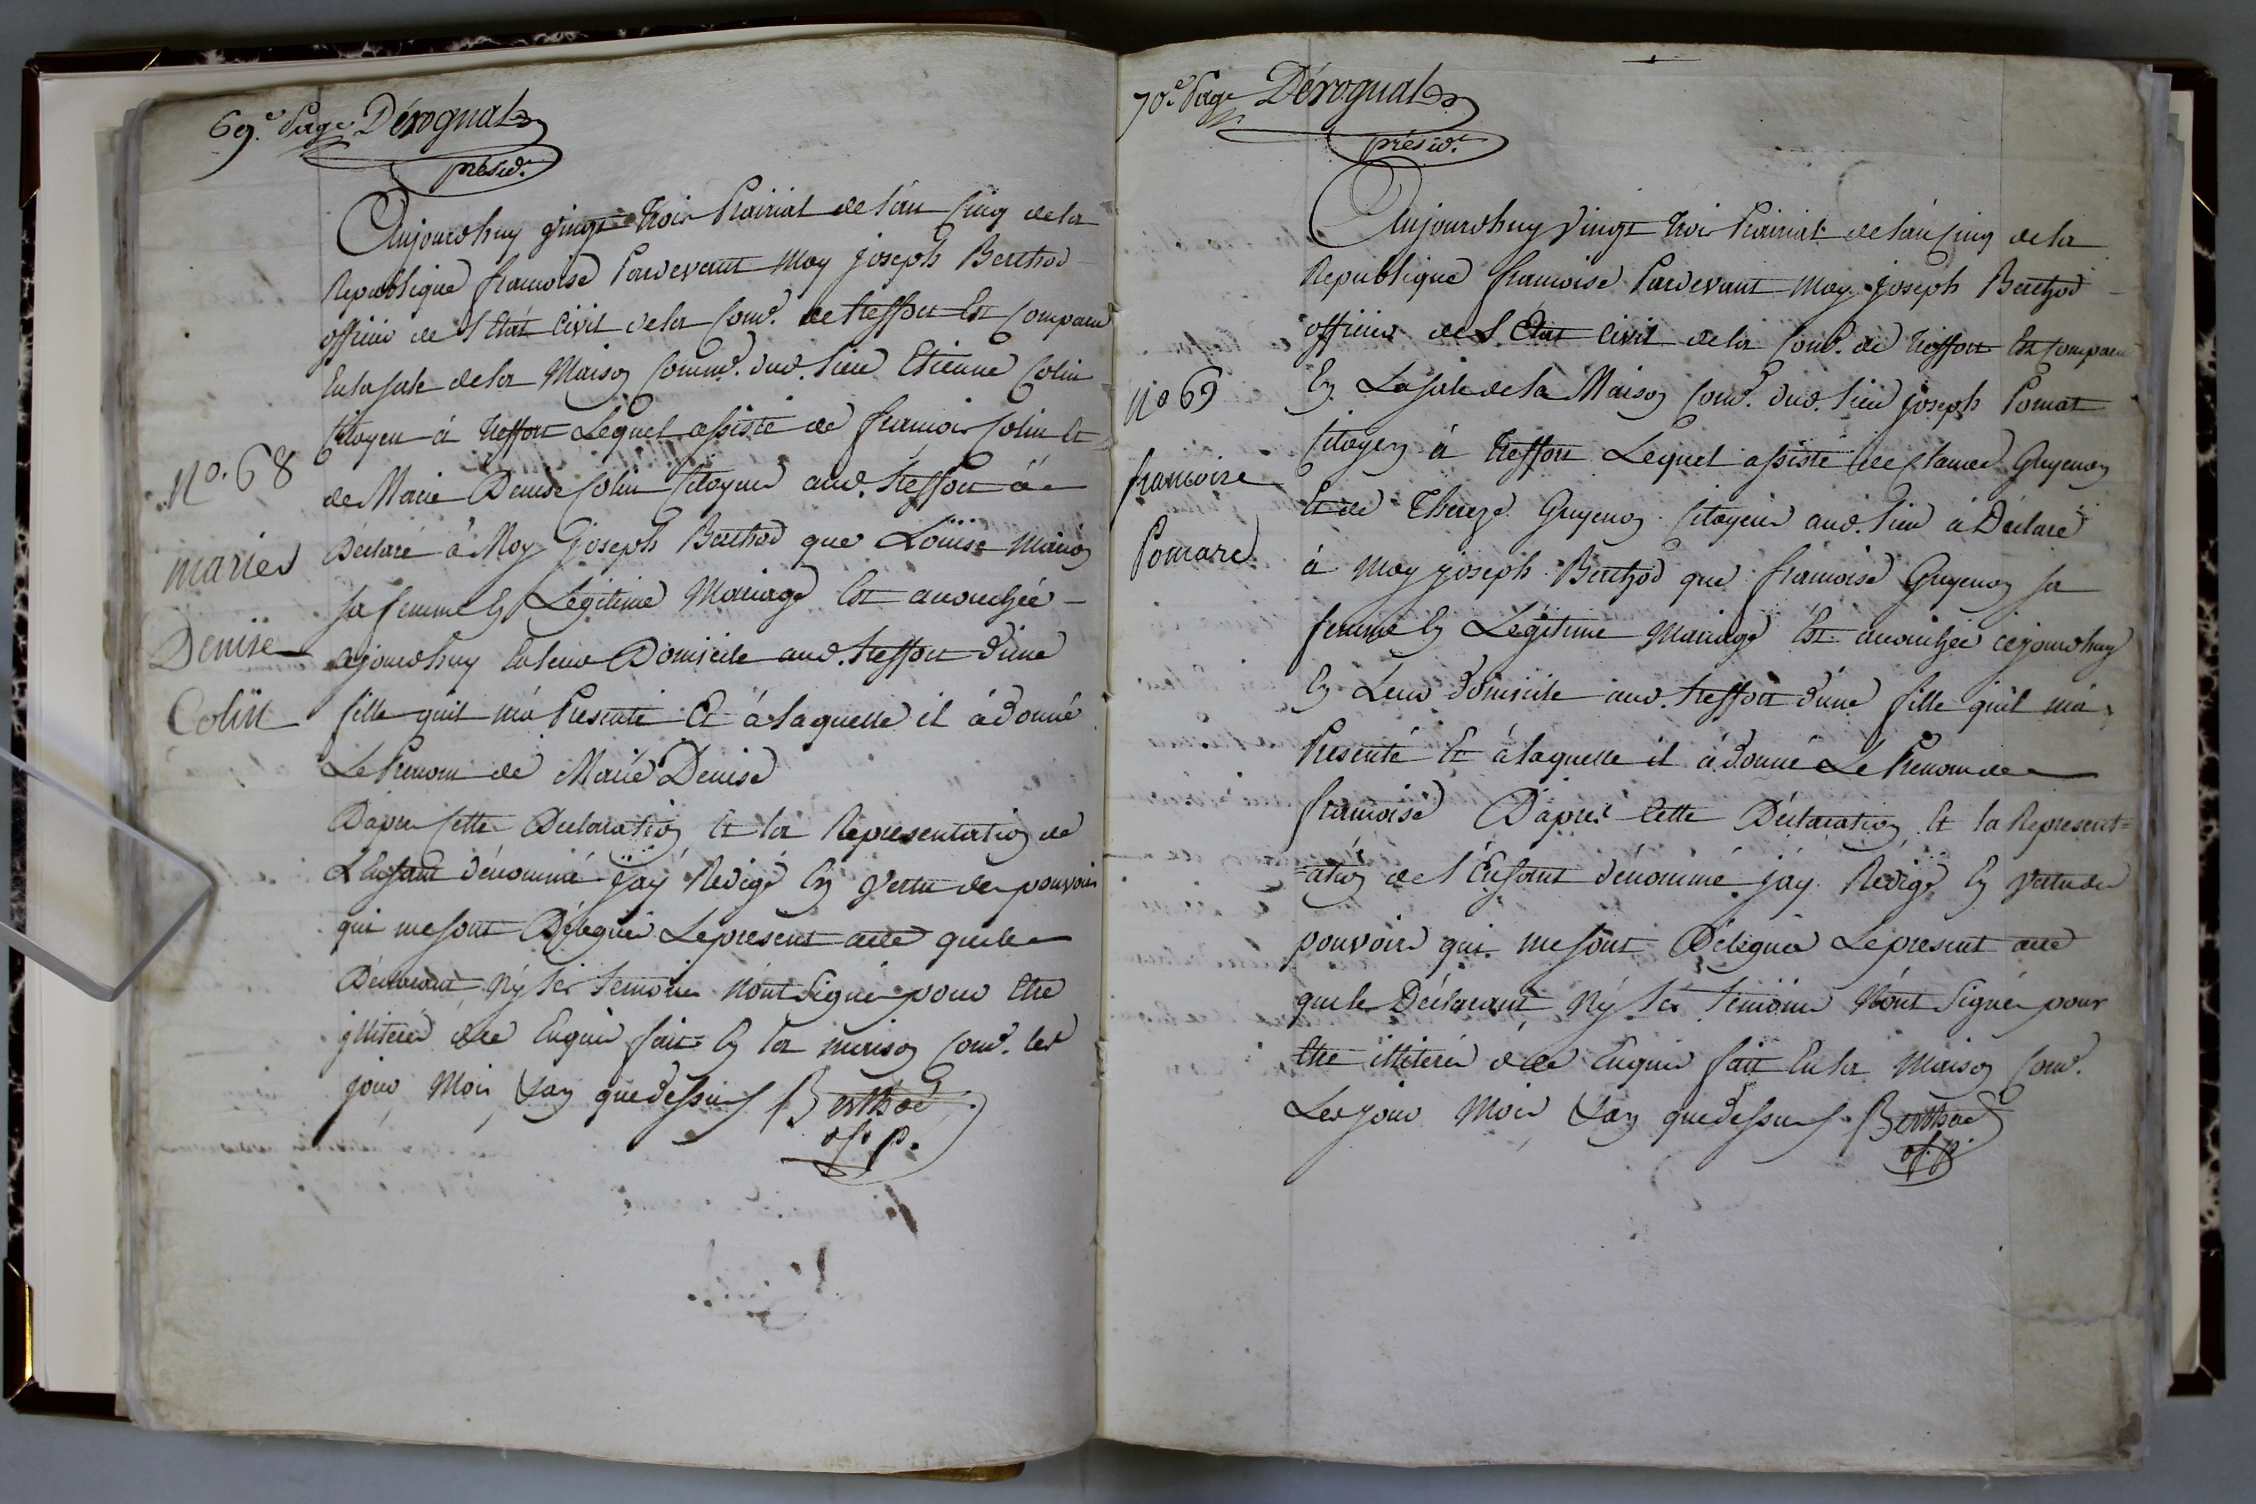 69.e Page Dérognat
présid.t
Aujourdhuy vingt trois Prairial de l'an Cinq dela
Republique francoise Pardevant Moy joseph Berthod
officier de l'Etat Civil dela Com.e de treffort Est Comparu
En la sale dela Maison Comm.e dud. lieu Etienne Colin
Citoyen à treffort Lequel assisté de francois Colin Et
de Marie Denise Colin Citoyens aud. treffort à
Déclaré à Moy Joseph Berthod que Loüise Marion
sa femme En Légitime Mariage Est accouchée
cejourdhuy En leur Domicile aud. treffort d'une
fille quil m'a Presenté Et à laquelle il à donné
Le Prenom de Marie Denise
D'apres Cette Declaration Et la Representation de
L'Enfant dénommé J'ay Redigé En Vertu des pouvoirs
qui me sont Délegués Le present acte que le
Déclarant Ny ses témoins N'ont Signé pour Etre
illiterés de ce Enquis fait En la maison Com.e les
jour Mois & an que dessus Berthod
of. p.
N.o 68
marie
Denise
Colin
70.e Page Dérognat
présid.t
Aujourdhuy Vingt trois Prairial de l'an Cinq dela
Republique francoise Pardevant Moy joseph Berthod
officier de L'Etat Civil dela Com.e de treffort Est Comparu
En La sale de la Maison Com.e dud. lieu joseph Pomat
Citoyen à treffort Lequel assisté de Claude Guyenon
Et de Thereze Guyenon Citoyens aud. lieu à Déclaré
à Moy joseph Berthod que francoise Guyenon sa
femme En Légitime Mariage Est accouchée cejourdhuy
En Leur domicile aud. treffort d'une fille quil m'a
Presenté Et à laquelle il à donné Le Prenom de
francoise D'après Cette Déclaration Et la Represent=
=ation de l'Enfant dénommé j'ay Redigé En Vertu des
pouvoirs qui me sont Délegués Le present acte
que le Déclarant Ny ses témoins N'ont Signé pour
Etre illiterés de ce Enquis fait En la Maison Com.e
Les jour Mois & an que dessus Berthod
of. p.
N.o 69
francoise
Pomard